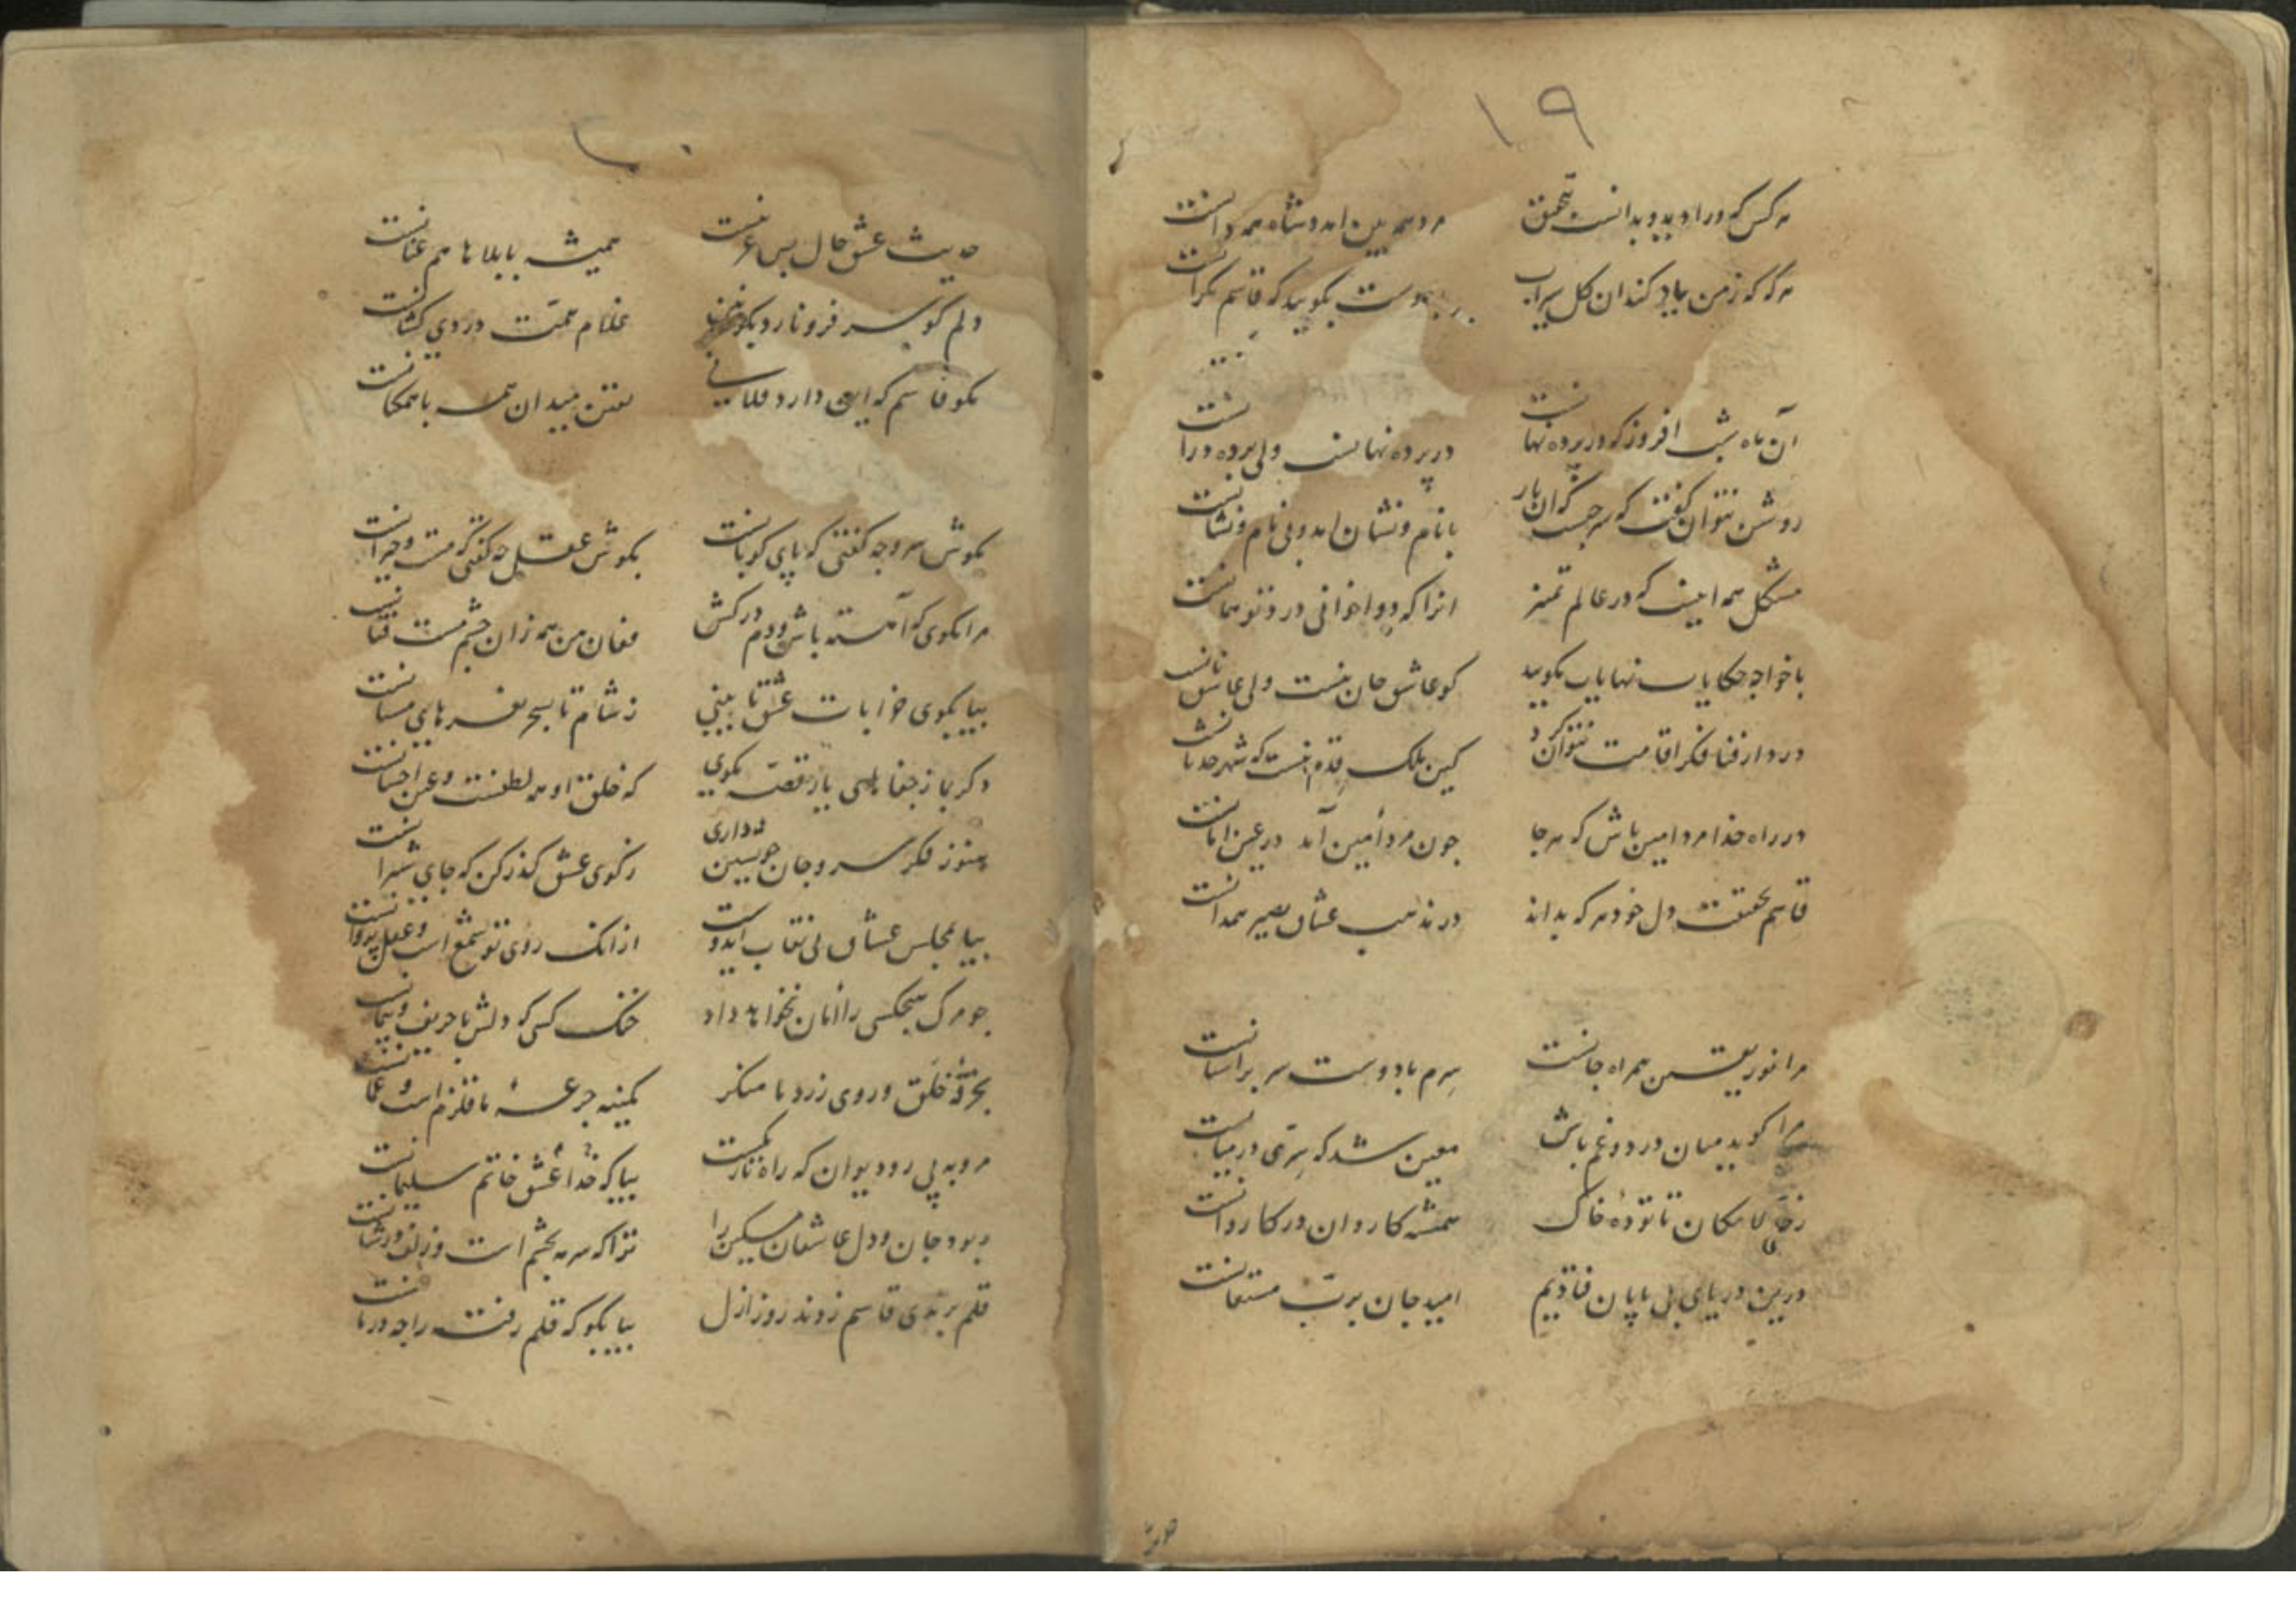 ۱۹
هر کس که ورا دید و بدانست بتحقیق مرد همه بین آمد و شاه همه دانست
هر گه که ز من یاد کند آن گل سیراب بدوست بگویید که قاسم نگرانست
آن ماه شب افروز که در پرده نهانست در پرده نهانست ولی پرده درانست
روشن نتوان گفت که سرچیست که آن یار با نام و نشان آمد و بی نام و نشانست
مشکل همه اینست که در عالم تمییز آنرا که دوا خوانی درد تو همانست
با خواجه حکایات نهایات بگویید کو عاشق جان نیست ولی عاشق نانست
در دار فنا فکر اقامت نتوان کرد کین ملک قدم نیست که شهر حدثانست
در راه خدا مرد امین باش که هر جا چون مرد امین آمد در عین امانست
قاسم بحقیقت دل خود هر که بداند در مذهب عشاق بصیر همدانست
مرا نور یقین همراه جانست سرم با دوست سر بر آستانست
مرا گوید میان درد و غم باش معین شد که سری در میانست
ز حی لامکان تا توده خاک همیشه کاروان در کاروانست
درین دریای بی پایان فتادیم امید جان برب مستعانست
حدیث
۲۰
حدیث عشق حال بس غریبست همیشه با بلاها هم عنانست
دلم کو سر فرو نارد بکونین غلام همت دردی کشانست
بگو قاسم که این دارد فلانی یقین میدان همه با همگنانست
بگوش سرو چه گفتی که پای کوبانست بگوش عقل چه گفتی که مست و حیرانست
مرا مگوی که آهسته باش و دم در کش فغان من همه زان چشم مست فتانست
بیا بکوی خرابات عشق تا بینی ز شام تا بسحر نعره های مستانست
دگر بما ز جفاهای یار قصه مگوی که خلق او همه لطفست و عین احسانست
هنوز فکر سر و جان خویشتن داری ز کوی عشق گذر کن که جای شیرانست
بیا بمجلس عشاق بی نقاب ای دوست از آنک روی تو شمع است و عقل پروانست
چو مرگ هیچکسی را امان نخواهد داد خنک کسی که دلش با حریف و پیمانست
بخرقه خلق و روی زرد ما منگر کمینه جرعه ما قلزم است و عمانست
مرو به پی رو دیوان که راه تاریکست بیا که خدا عشق خاتم سلیمانست
ربود جان و دل عاشقان مسکین را ترا که سرمه بچشم است و زلف در شانست
قلم برندی قاسم زدند روز ازل بیا بگو که قلم رفته را چه درمانست